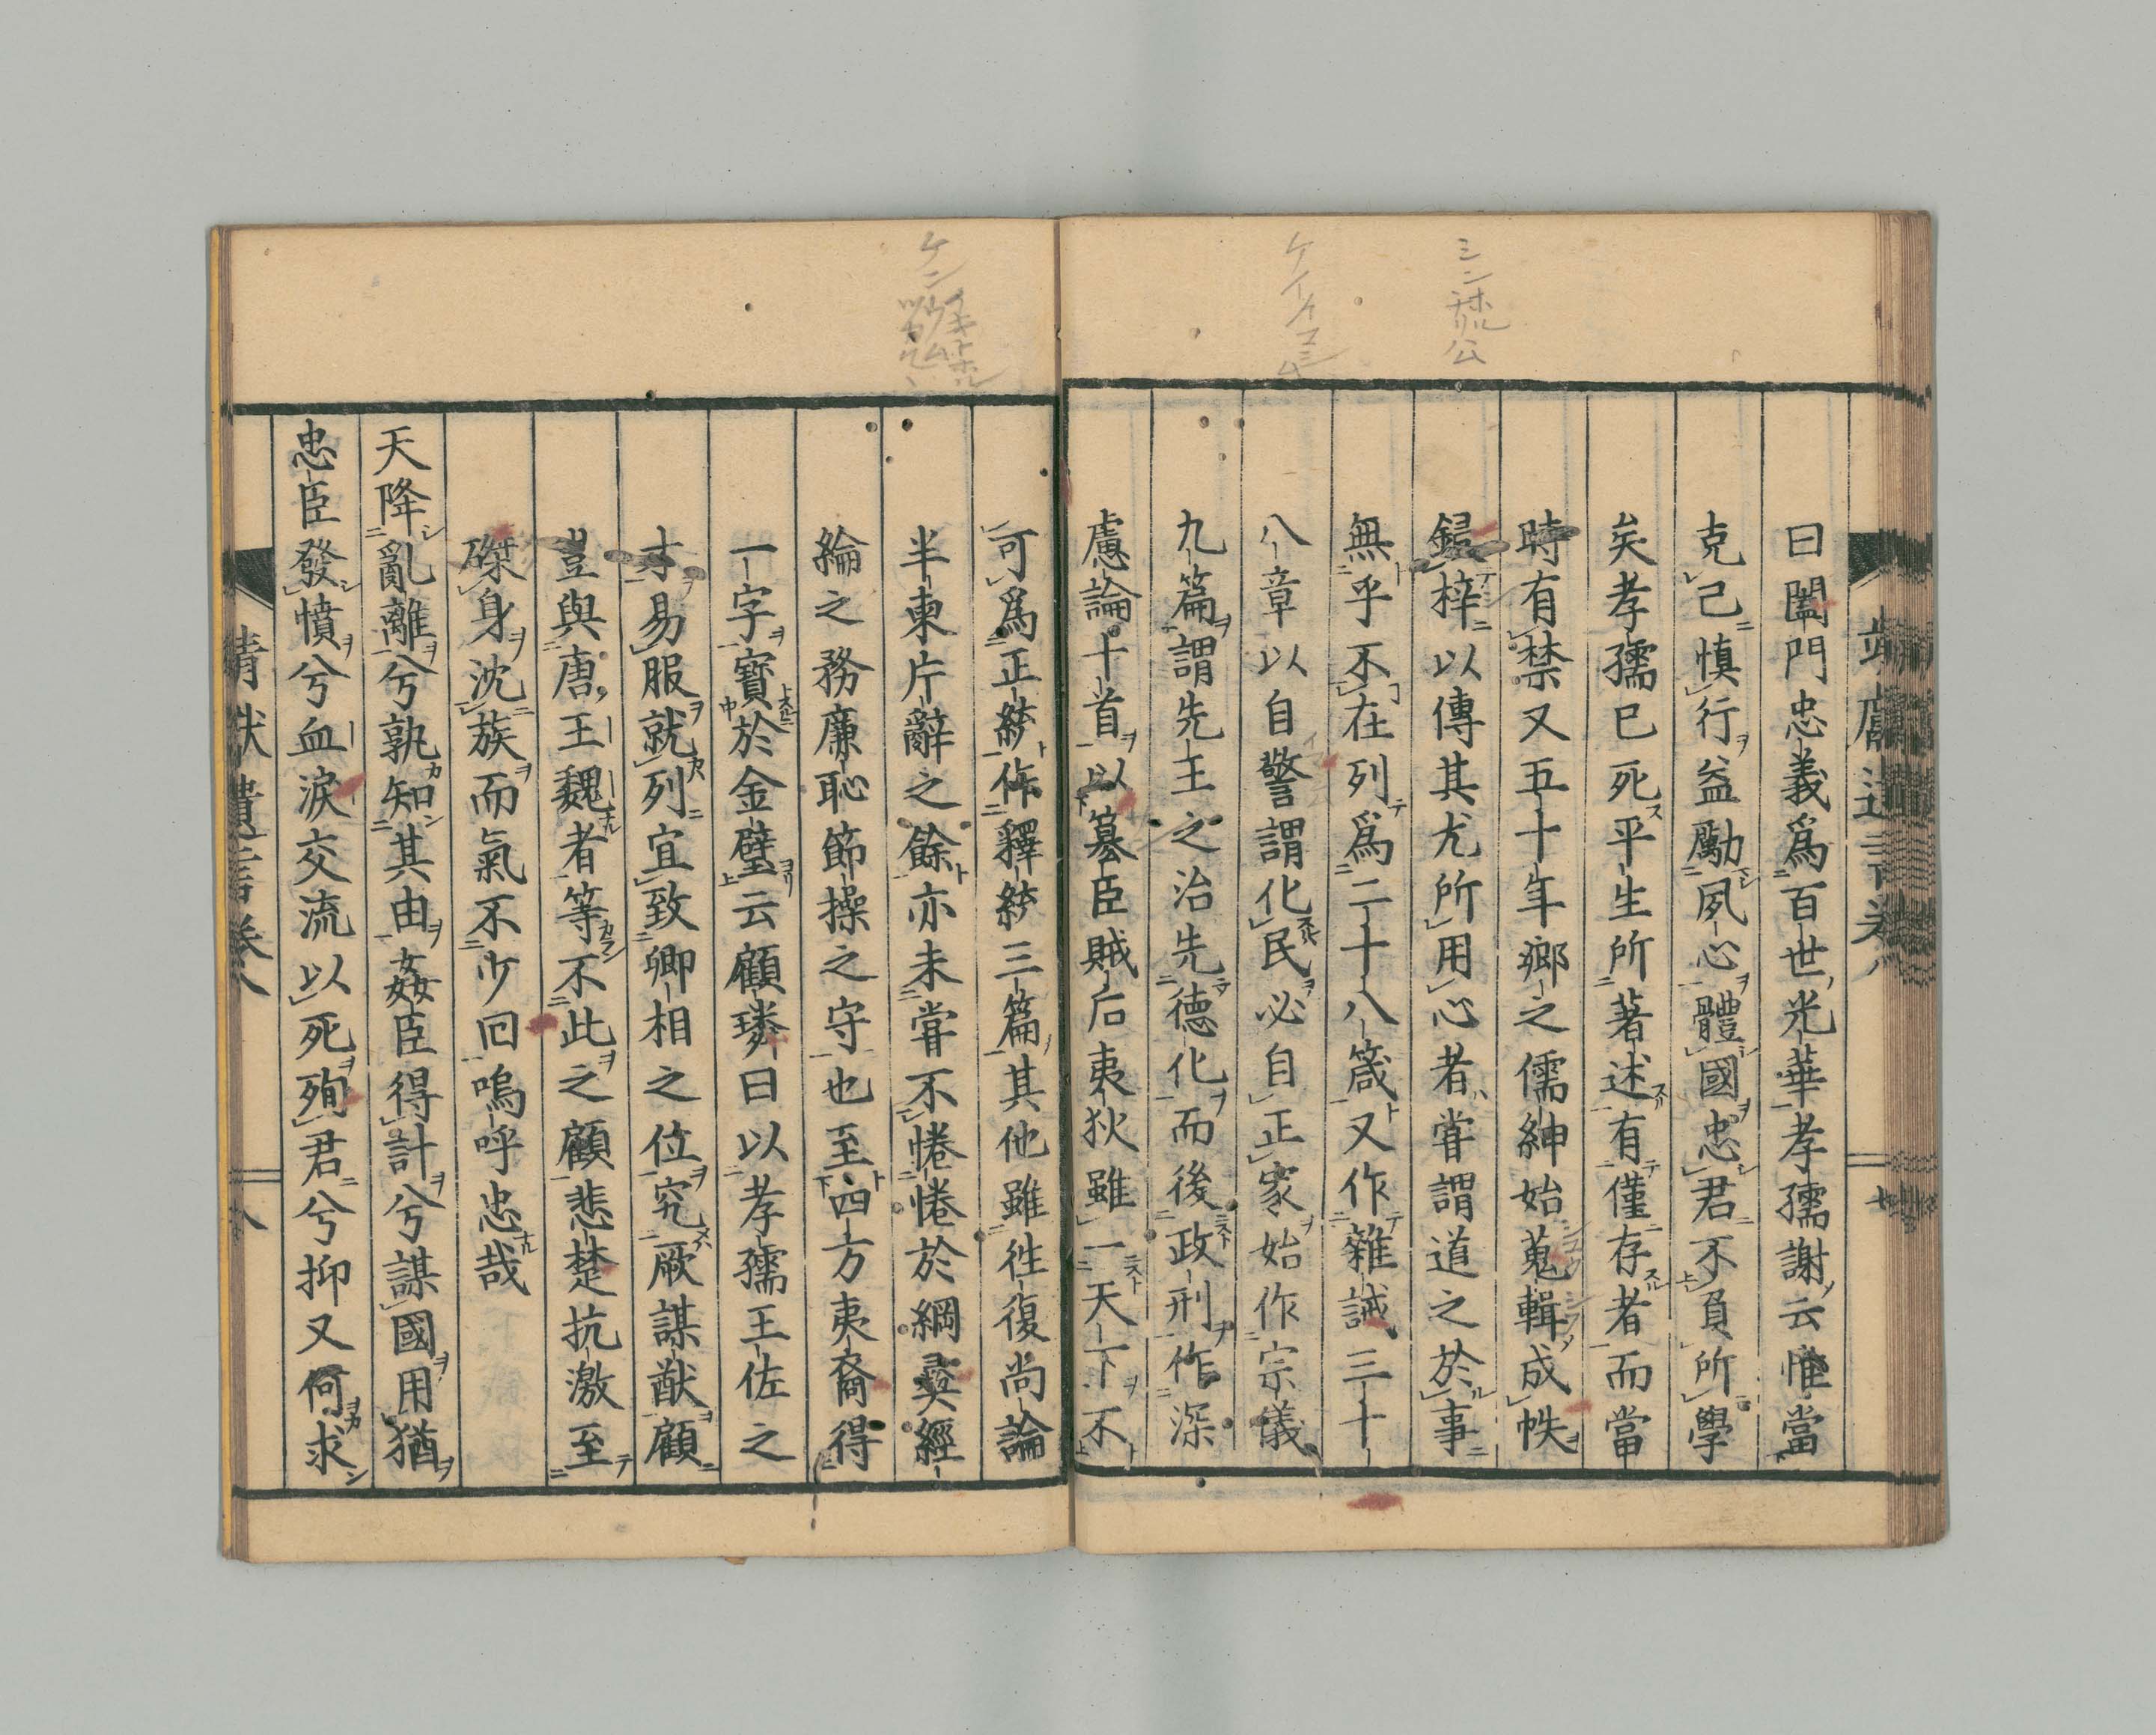 曰闔門忠義爲百世光華孝孺謝云惟當
克己愼行益勵夙心體國忠君不負所學
矣孝孺已死平生所著述有僅存者而當
時有禁又五十年鄉之儒紳始蒐輯成帙
鋟梓以傳其尤所用心者嘗謂道之於事
無乎不在列爲二十八箴又作雜誡三十
八章以自警謂化民必自正家始作宗儀
九篇謂先王之治先德化而後政刑作深
慮論十首以簒臣賊后夷狄雖一天下不
可爲正統作釋統三篇其他雖徃復尚論
半柬片辭之餘亦未嘗不惓惓於綱彝經
綸之務廉恥節操之守也至四方夷裔得
一字寶於金璧云顧璘曰以孝孺王佐之
才易服就列宜致卿相之位究厥謀猷顧
豈與唐王魏者等不此之顧悲楚抗激至
磔身沈族而氣不少囘嗚呼忠哉
天降亂離兮孰知其由姦臣得計兮謀國用猶
忠臣發憤兮血淚交流以死殉君兮抑又何求